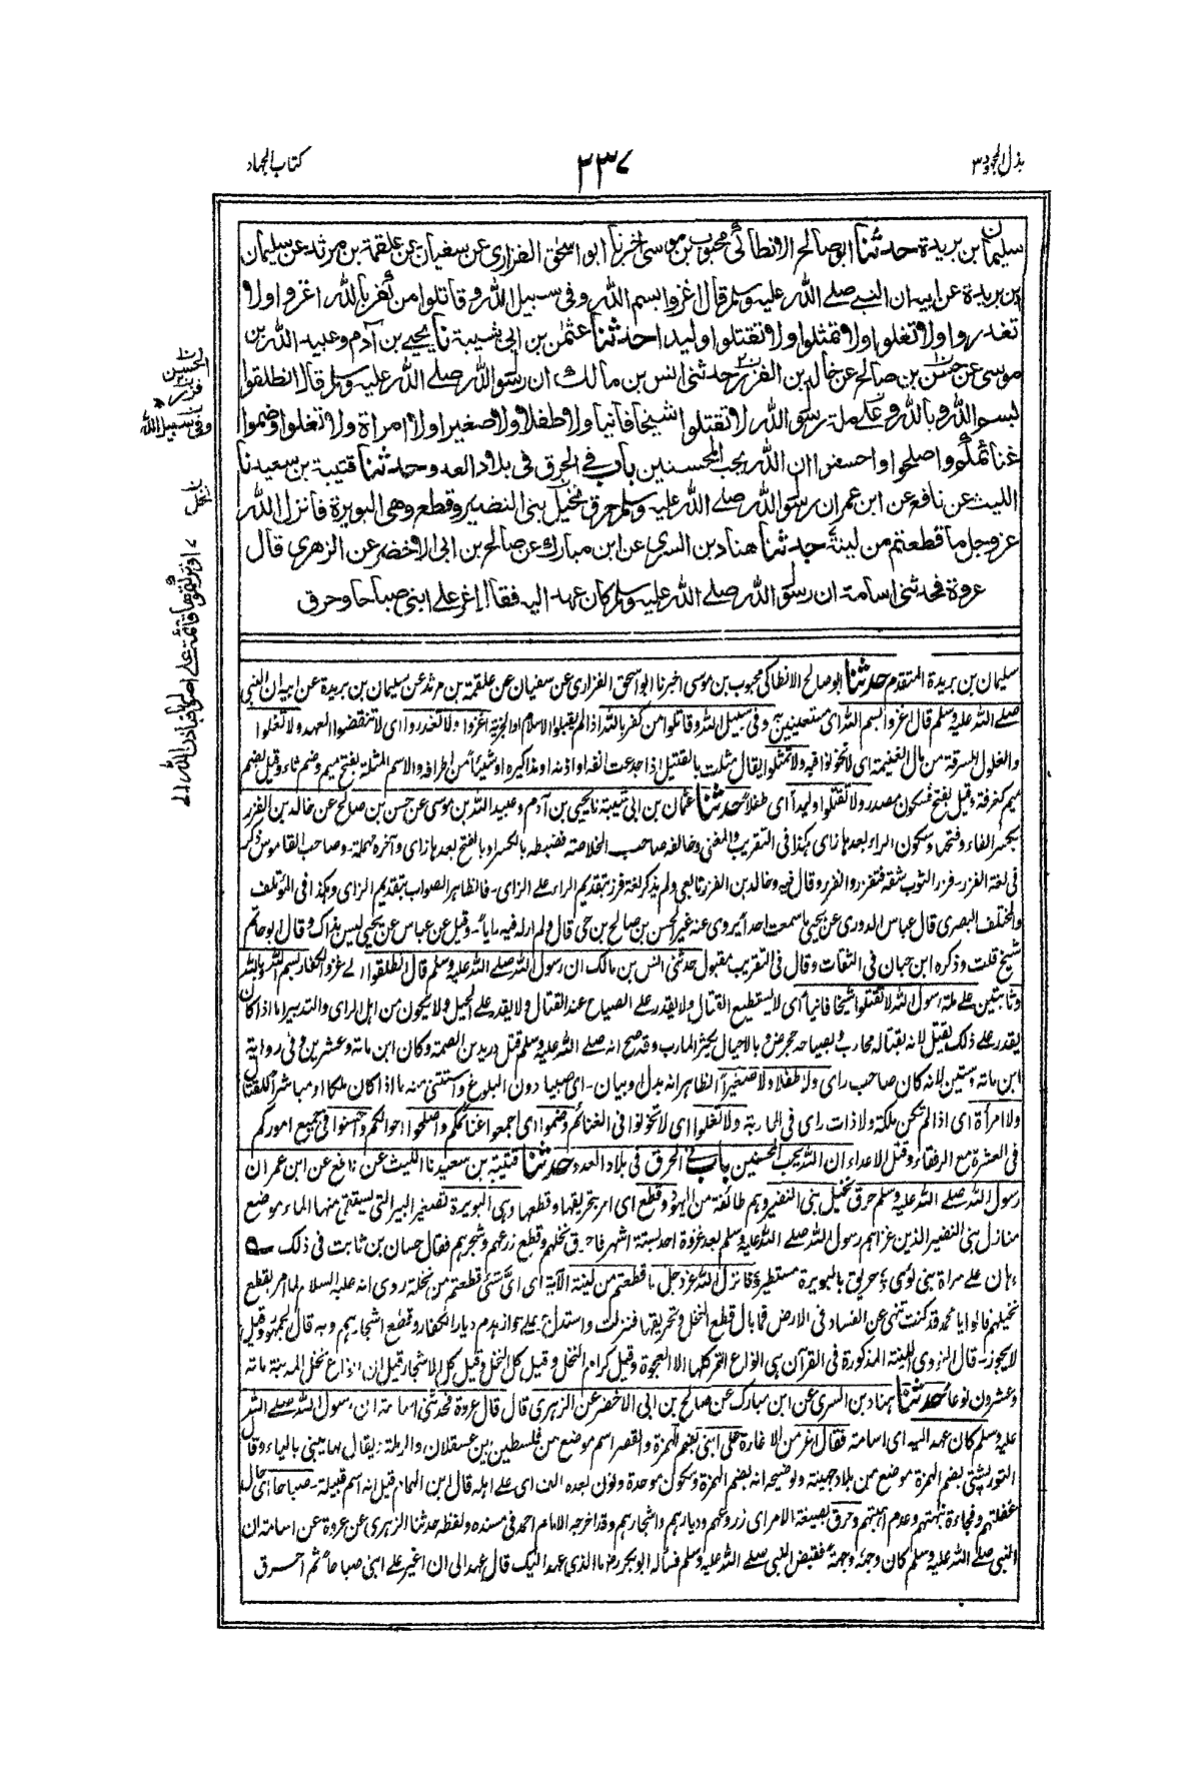 بذل المجهود ٣
٢٣٧
كتاب الجهاد
سليمان بن بريدة حدثنا ابو صالح الانطاكي محبوب بن موسى اخبرنا ابو اسحق الفزاري عن سفيان عن علقمة بن مرثد عن سليمان
ابن بريدة عن ابيه ان النبي صلے الله عليه وسلم قال اغزوا بسم الله وفى سبيل الله وقاتلوا من كفر بالله اغزوا ولا
تغدروا ولا تغلوا ولا تمثلوا ولا تقتلوا وليدا حدثنا عثمن بن ابى شيبة نا يحيے بن آدم وعبيد الله بن
موسى عن حسن بن صالح عن خالد بن الفزر حدثنى انس بن مالك ان رسول الله صلے الله عليه وسلم قال انطلقوا
بسم الله وبالله وعلے ملة رسول الله لا تقتلوا شيخا فانيا ولا طفلا ولا صغيرا ولا امرأة ولا تغلوا وضموا
غنائمكم واصلحوا واحسنوا ان الله يحب المحسنين باب في الحرق فى بلاد العدو حدثنا قتيبة بن سعيد نا
الليث عن نافع عن ابن عمر ان رسول الله صلے الله عليه وسلم حرق نخيل بنى النضير وقطع وهى البويرة فانزل الله
عز وجل ما قطعتم من لينة حدثنا هناد بن السري عن ابن مبارك عن صالح بن ابى الاخضر عن الزهري قال
عروة فحدثنى اسامة ان رسول الله صلے الله عليه وسلم كان عهد اليه فقال اغر على ابنى صباحا وحرق
ن الحسن
وفى سبيل الله
ن نخل
او تركتموها قائمة على اصولها فباذن الله
سليمان بن بريدة المتقدم حدثنا ابو صالح الانطاكى محبوب بن موسى اخبرنا ابو اسحق الفزارى عن سفيان عن علقمة بن مرثد عن سليمان بن بريدة عن ابيه ان النبى
صلے الله عليه وسلم قال اغزوا بسم الله اى مستعينين به وفى سبيل الله وقاتلوا من كفر بالله اذا لم يقبلوا الاسلام او الجزية اغزوا ولا تغدروا اى لا تنقضوا العهد ولا تغلوا
والغلول السرقة من مال الغنيمة اى لا تخونوا فيه ولا تمثلوا يقال مثلت بالقتيل اذا جدعت انفه او اذنه او مذاكيره او شيئا من اطرافه والاسم المثلة بفتح ميم وضم ثاء وقيل بضم
ميم كغرفة وقيل بفتح فسكون مصدر ولا تقتلوا وليدا اى طفلا حدثنا عثمان بن ابى شيبة نا يحيى بن آدم وعبيد الله بن موسى عن حسن بن صالح عن خالد بن الفزر
بكسر الفاء وفتحها وسكون الراء بعدها زاى هكذا فى التقريب والمغنى وخالفه صاحب الخلاصة فضبطه بالكسر او بالفتح بعدها زاى وآخره مهملة وصاحب القاموس ذكر
فى لغة الفزر - فزر الثوب شقه فتفزر والفزر وقال فيه وخالد بن الفزر تابعى ولم يذكر لغة فرز بتقديم الراء على الزاى - فالظاهر الصواب بتقديم الزاى وهكذا فى المؤتلف
والمختلف البصرى قال عباس الدورى عن يحيى ما سمعت احدا يروى عنه غير الحسن بن صالح بن حى قال ولم ار له فيه رأيا - وقيل عن عباس عن يحيى ليس بذاك وقال ابو حاتم
شيخ قلت وذكره ابن حبان فى الثقات وقال فى التقريب مقبول حدثنى انس بن مالك ان رسول الله صلے الله عليه وسلم قال انطلقوا الے غزو الكفار بسم الله وبالله
وثابتين على ملة رسول الله لا تقتلوا شيخا فانيا اى لا يستطيع القتال ولا يقدر على الصياح عند القتال ولا يقدر على الحيل ولا يكون من اهل الراى والتدبير اما اذا كان
يقدر على ذلك يقتل لانه بقتاله محارب وبصياحه محرض وبالاحبال يكثر المحارب وقد صح انه صلے الله عليه وسلم قتل دريد بن الصمة وكان ابن مائة وعشرين وفى رواية
ابن مائة وستين لانه كان صاحب راى ولا طفلا ولا صغيرا الظاهر انه بدل او بيان - اى صبيا دون البلوغ واستثنى منه ما اذا كان ملكا او مباشرا للقتال
ولا امرأة اى اذا لم تكن ملكة ولا ذات راى فى المحاربة ولا تغلوا اى لا تخونوا فى الغنائم وضموا اى اجمعوا غنائمكم واصلحوا احوالكم واحسنوا فى جميع اموركم
فى العشرة مع الرفقاء وقتل الاعداء ان الله يحب المحسنين باب فى الحرق فى بلاد العدو حدثنا قتيبة بن سعيد نا الليث عن نافع عن ابن عمر ان
رسول الله صلے الله عليه وسلم حرق نخيل بنى النضير وهم طائفة من اليهود وقطع اى امر بتحريقها وقطعها وهى البويرة تصغير البير التى يستقى منها الماء موضع
منازل بنى النضير الذين غزاهم رسول الله صلے الله عليه وسلم بعد غزوة احد بستة اشهر فاحرق نخلهم وقطع زرعهم وشجرهم فقال حسان بن ثابت فى ذلك
وهان على سراة بنى لوى ؛ حريق بالبويرة مستطير ؛ فانزل الله عز وجل ما قطعتم من لينة الآية اى اىّ شئ قطعتم من نخلة روى انه عليه السلام لما امر بقطع
نخيلهم قالوا يا محمد قد كنت تنهى عن الفساد فى الارض فما بال قطع النخل وتحريقها فنزلت واستدل به على جواز هدم ديار الكفار وقطع اشجارهم وبه قال الجمهور وقيل
لا يجوز - قال النووى اللينة المذكورة فى القرآن هى انواع التمر كلها الا العجوة وقيل كرام النخل وقيل كل النخل وقيل كل الاشجار وقيل ان انواع نخل المدينة مائة
وعشرون نوعا حدثنا هناد بن السرى عن ابن مبارك عن صالح بن ابى الاخضر عن الزهرى قال قال عروة فحدثنى اسامة ان رسول الله صلے الله
عليه وسلم كان عهد اليه اى اسامة فقال اغر من الاغارة على ابنى بضم الهمزة والقصر اسم موضع من فلسطين بين عسقلان والرملة ويقال لها يبنى بالياء وقال
التوربشتى بضم الهمزة موضع من بلاد جهينة وتوضيحه انه بضم الهمزة وسكون موحدة ونون بعده الف اى على اهله قال ابن الهمام قيل انه اسم قبيلة - صباحا اى حال
غفلتهم وفجاءة نبهتهم وعدم اهبتهم وحرق بصيغة الامر اى زروعهم وديارهم واشجارهم وقد اخرجه الامام احمد فى مسنده ولفظه حدثنا الزهرى عن عروة عن اسامة ان
النبى صلے الله عليه وسلم كان وجهه وجهة فقبض النبى صلے الله عليه وسلم فسأله ابو بكر رض ما الذى عهد اليك قال عهد الى ان اغير على ابنى صباحا ثم احرق